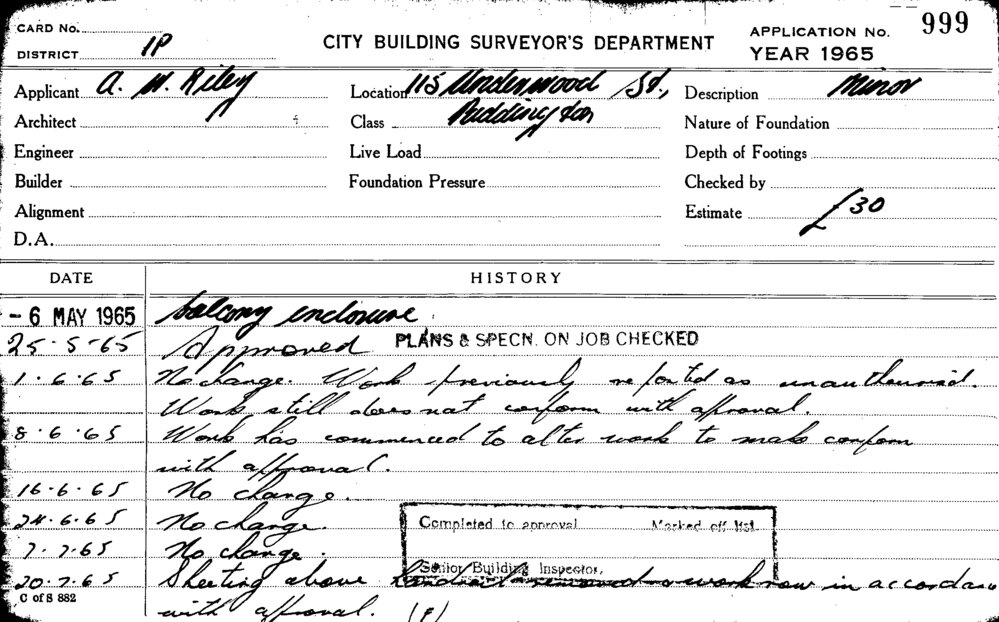 CARD No.
DISTRICT 1P
CITY BUILDING SURVEYOR'S DEPARTMENT
APPLICATION No. 999
YEAR 1965
Applicant A. W. Riley
Location 115 Underwood St.,
Description Minor
Architect
Class Paddington
Nature of Foundation
Engineer
Live Load
Depth of Footings
Builder
Foundation Pressure
Checked by
Alignment
Estimate £30
D.A.
DATE HISTORY
- 6 MAY 1965 balcony enclosure
25-5-65 Approved PLANS & SPECN. ON JOB CHECKED
1.6.65 No change. Work previously reported as unauthorised.
Work still does not conform with approval.
8.6.65 Work has commenced to alter work to make conform
with approval.
16.6.65 No change.
24.6.65 No change.
Completed to approval Marked off list
7.7.65 No change.
Senior Building Inspector,
20.7.65 Sheeting above handrail removed work now in accordance
C of S 882
with approval. (F)